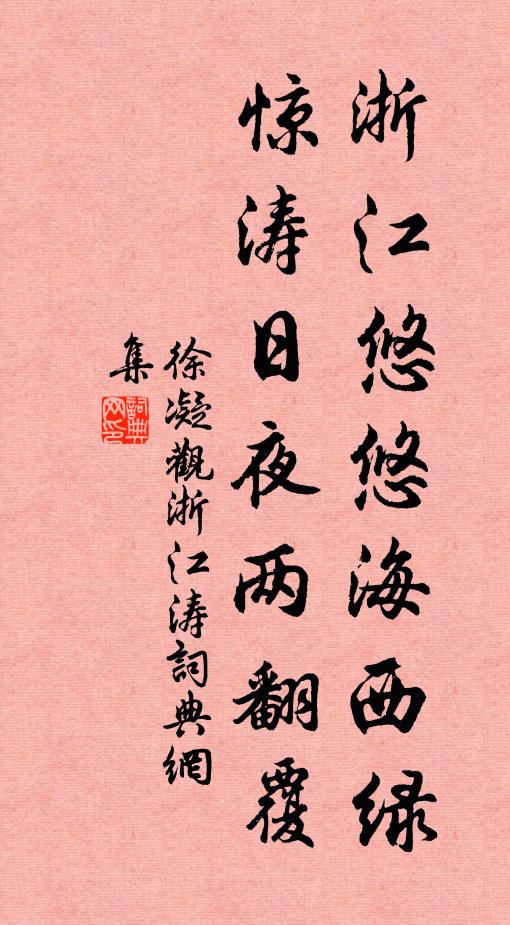 浙江悠悠海西绿
惊涛日夜两翻覆
徐凝觀浙江涛詞典網
集
詞典
网印